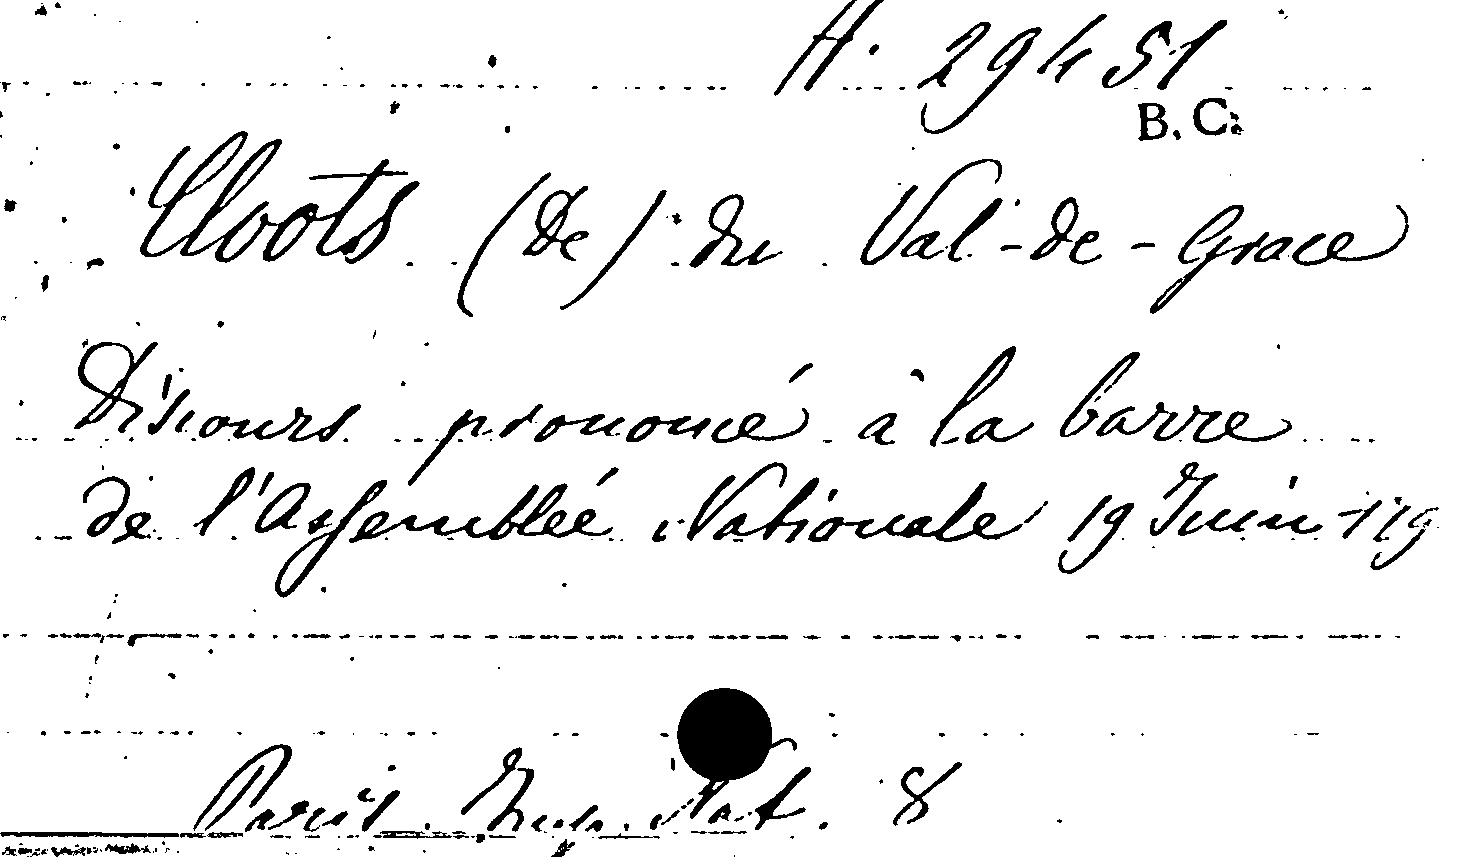 H. 29451
B. C.
Cloots (De) du Val-de-Grace
Discours prononcé à la barre
de l'Assemblée Nationale 19 Juin 179
Paris. Imp. Nat. 8